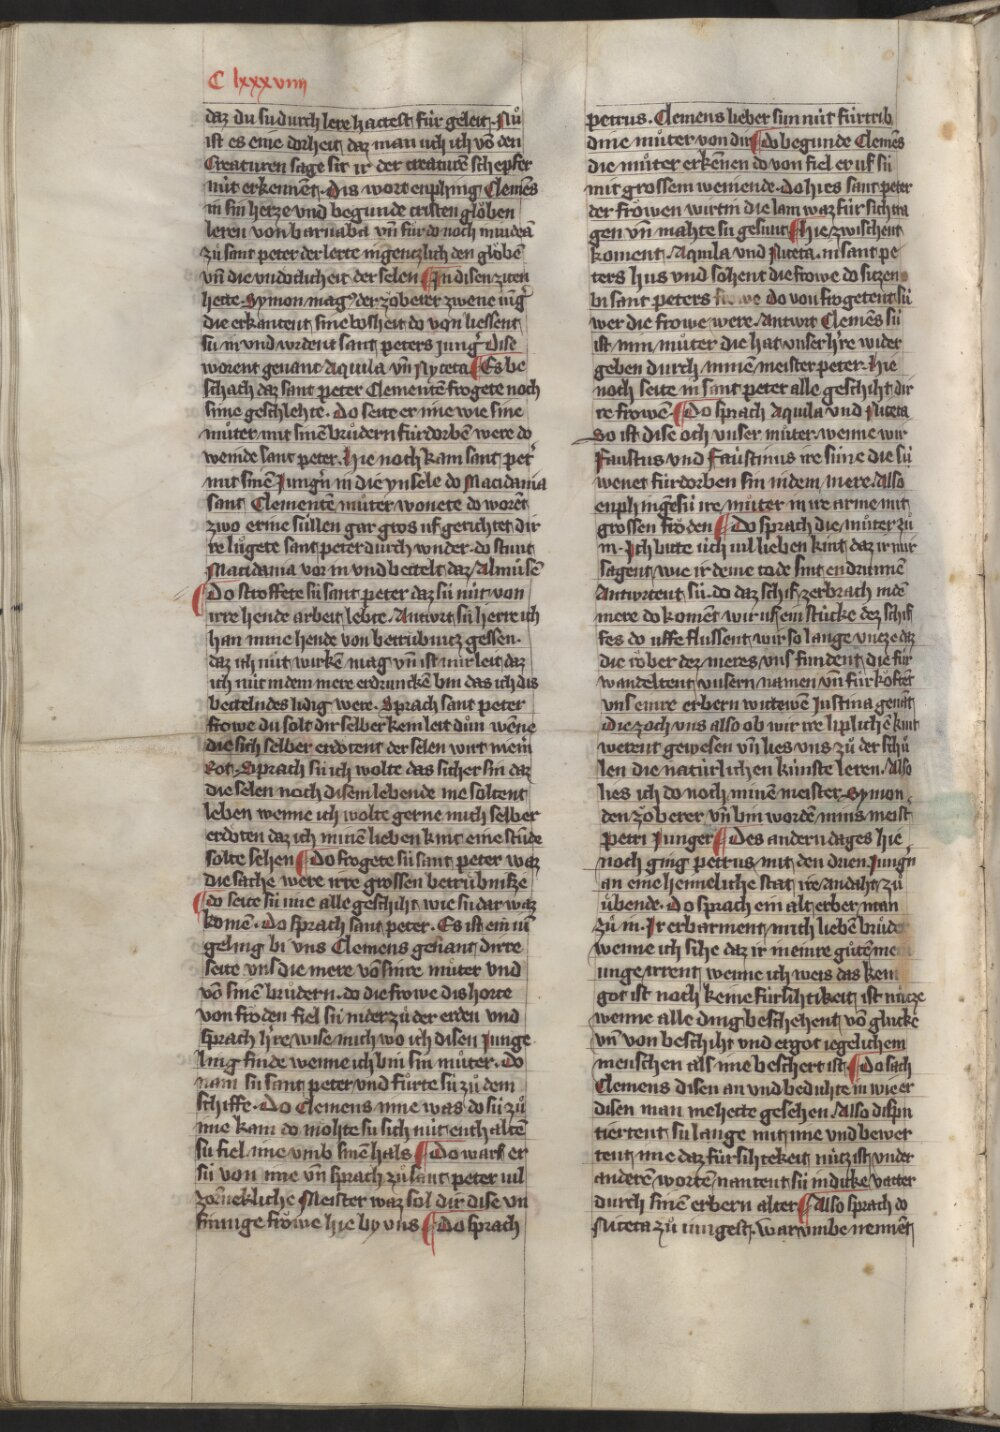 C lxxxviiij
daz du su durch lere hattest fúr geleit. Nuͦ
ist es eine dorheit daz man uch ich vō den
Creaturen sage sit ir der creaturē schepfer
nút erkennent. Dis wort enphing Clemēs
in sin hertze vnd begunde cristen gloͤben
leren von barnaba vn̄ fuͦr do noch in iudeā
zuͦ sant peter der lerte in gentzlich den gloͤbē
vn̄ die vndotlicheit der selen ¶ In disen ziten
hette Symon mag⁹ der zoͤberer zwene iūg͛
die erkantent sine bosheit do von liessent
sú in vnd wrdent sant peters iung͛ Dise
worent genant Aquila vn̄ Nyceta ¶ Es be
schach daz sant peter Clementē frogete noch
sime geschlehte. Do seite er ime wie sine
muͦter mit sinē bruͤdern fúrdorbē were do
weinde sant peter. Hie noch kam sant pet͛
mit sinē Jung͛n in die ynsele do Macidania
sant Clementē muͦter wonete do worēt
zwo erine súllen gar gros uf gerichtet dir
re luͦgete sant peter durch wnder. do stunt
Macidania vor in vnd bettelt daz Almuͦsē
¶ Do stroffete sú sant peter daz sú nút von
irre hende arbeit lebte. Antwrt sú herre ich
han mine hende von betruͤbnitz gessen.
daz ich nút wirkē mag vn̄ ist mir leit daz
ich nút in dem mere erdrunckē bin das ich dis
bettelndes lidig were. Sprach sant peter
frowe du solt dir selber kein leit duͦn wēne
die sich selber erdotent der selen wirt niem͛
Rot. Sprach sú ich wolte das sicher sin daz
die selen noch disem lebende me soltent
leben wenne ich wolte gerne mich selber
erdoten daz ich minē lieben kint eine stūde
solte sehen ¶ Do frogete sú sant peter waz
die sache were irre grossen betruͤbnisze
¶ do seite sú ime alle geschiht wie sú dar waz
komē. Do sprach sant peter. Es ist ein iū
geling bi vns Clemens genant dirre
seite vns die mere vō sinre muͦter vnd
vō sinē bruͤdern. do die frowe dis horte
von froͤden fiel sú nider zuͦ der erden vnd
sprach h͛re wise mich wo ich disen Junge
ling finde wenne ich bin sin muͦter. Do
nam sú sant peter vnd fuͦrte sú zuͦ dem
schiffe. Do Clemens inne was do sú zuͦ
ime kam do mohte sú sich nút enthaltē
sú fiel ime vmb sinē hals ¶ Do warf er
sú von ime vn̄ sprach zuͦ sant peter vil
zornekliche Meister waz sol dir dise vn
sinnige frowe hie by vns ¶ Do sprach
petrus. Clemens lieber sun nút fúrtrib
dine muͦter von dir ¶ do begunde Clemēs
die muͦter erkēnen do von fiel er uf sú
mit grossem weinende. Do hies sant peter
der frowen wirtin die lam waz fúr sich tra
gen vn̄ mahte sú gesunt ¶ Hie zwischent
koment Aquila vnd Niceta in sant pe
ters hus vnd sohent die frowe do sitzen
bi sant peters frowe do von frogetent sú
wer die frowe were. Antwrt Clemēs sú
ist min muͦter die hat vnser h͛re wider
geben durch minen meister peter. Hie
noch seite in sant peter alle geschiht dir
re frowē ¶ Do sprach Aquila vnd Niceta
So ist dise och vnser muͦter wenne wir
Faustus vnd Faustinus ire súne die sú
wenet fúrdorben sin in dem mere. Also
enphingēsú ire muͦter in ire arme mit
grossen froͤden ¶ Do sprach die muͦter zuͦ
in. Ich bitte úch vil lieben kint daz ir mir
sagent wie ir deme tode sint endrunnē
Antwrtent sú. do daz schif zerbrach indē
mere do komēt wir uf ein stúcke dez schif
fes do uffe flussent wir so lange untze daz
die roͤber dez meres vns fundent die fúr
wandeltent vnsern namen vn̄ fúrkoͤftēt
vns einre erbern witewen Justina genāt
die zoch vns also ob wir ire liplichē kint
werent gewesen vn̄ lies vns zuͦ der schuͦ
len die natúrlichen kúnste leren. Also
lies ich do noch minē meister Symon
den zoͤberer vn̄ bin wordē mins meist͛
Petri Junger ¶ Des andern dages hie
noch ging petrus mit den drien Jung͛n
an eine heimeliche stat ire andaht zuͦ
uͤbende. Do sprach ein alt erber man
zuͦ in. Ir erbarment mich lieben bruͤde
wenne ich sihe daz ir in einre guͤtē me
unge irrent wenne ich weis das kein
got ist noch keine fúrsihtikeit ist nútze
wenne alle ding beschehent vō glúcke
vn̄ von beschiht vnd ergot iegelichem
menschen als ime beschert ist ¶ Do sach
Clemens disen an vnd beduhte in wie er
disen man me hette gesehen. Also dispu
tiertent sú lange mit ime vnd bewer
tent ime daz fúrsihtekeit nútz ist vnder
anderē wortē nantent sú in dicke vatter
durch sinē erbern alter ¶ Also sprach do
Niceta zuͦ iungest. war vmbe nennēt